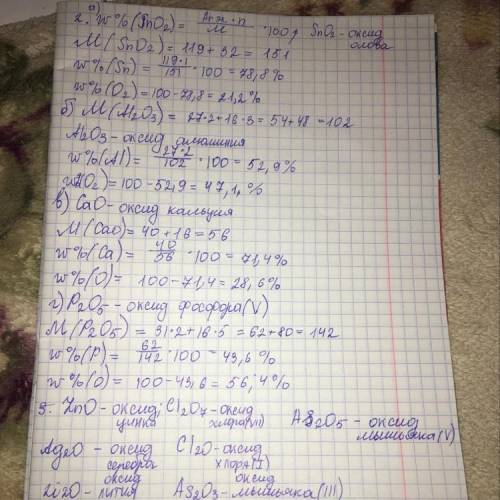 а)
2. w%(SnO2) = Ar эл · n / M · 100, SnO2 - оксид олова
M(SnO2) = 119 + 32 = 151
w%(Sn) = 119·1 / 151 · 100 = 78,8%
w%(O2) = 100 - 78,8 = 21,2%
б) M(Al2O3) = 27·2 + 16·3 = 54 + 48 = 102
Al2O3 - оксид алюминия
w%(Al) = 27·2 / 102 · 100 = 52,9%
= 100 - 52,9 = 47,1%
в) CaO - оксид кальция
M(CaO) = 40 + 16 = 56
w%(Ca) = 40 / 56 · 100 = 71,4%
w%(O) = 100 - 71,4 = 28,6%
г) P2O5 - оксид фосфора(V)
M(P2O5) = 31·2 + 16·5 = 62 + 80 = 142
w%(P) = 62 / 142 · 100 = 43,6%
w%(O) = 100 - 43,6 = 56,4%
3. ZnO - оксид цинка; Cl2O7 - оксид хлора(VII) As2O5 - оксид мышьяка(V)
Ag2O - оксид серебра Cl2O - оксид хлора(I)
Li2O - оксид лития As2O3 - оксид мышьяка(III)